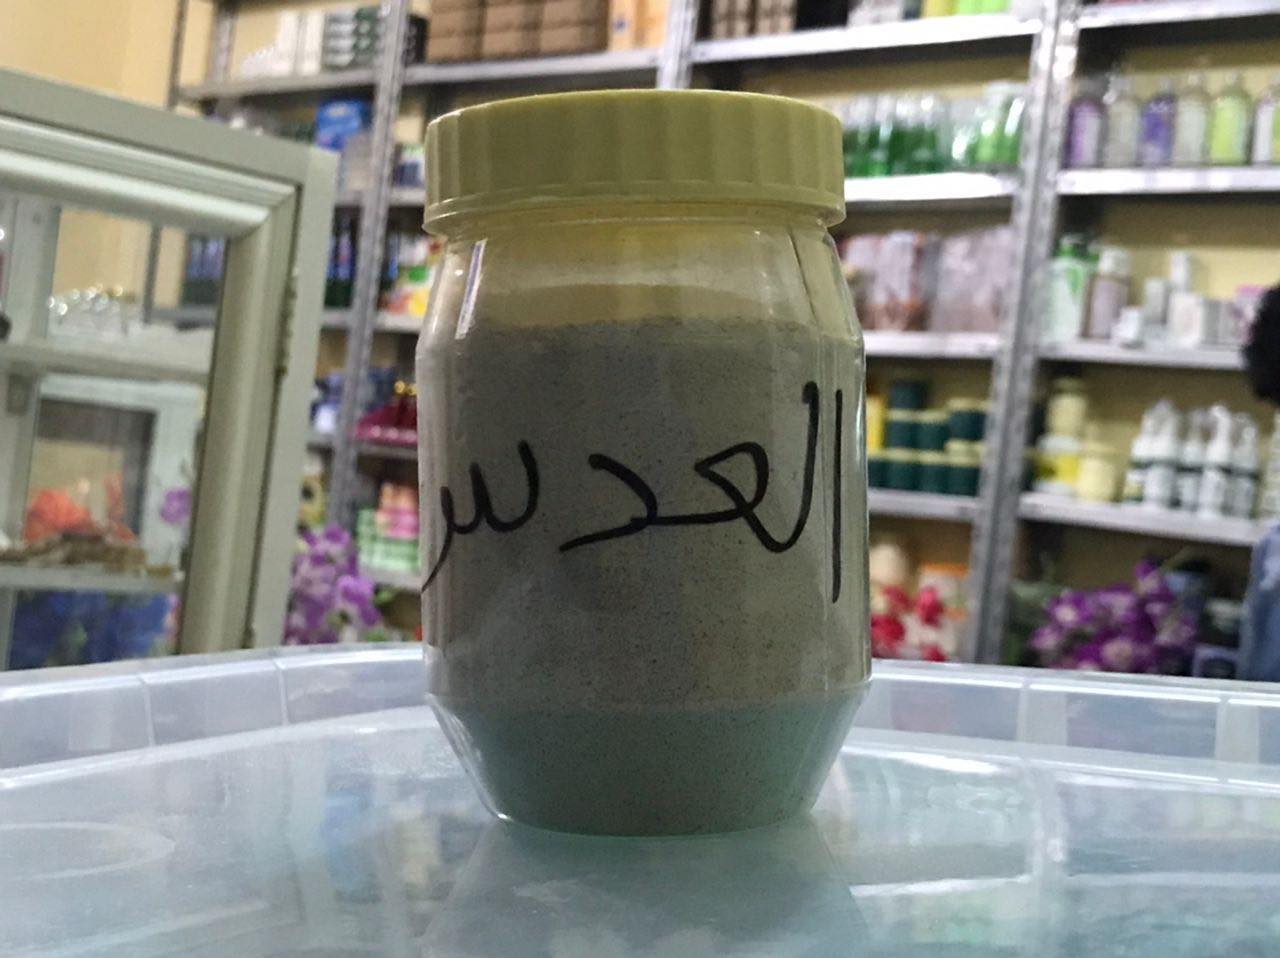 العدس